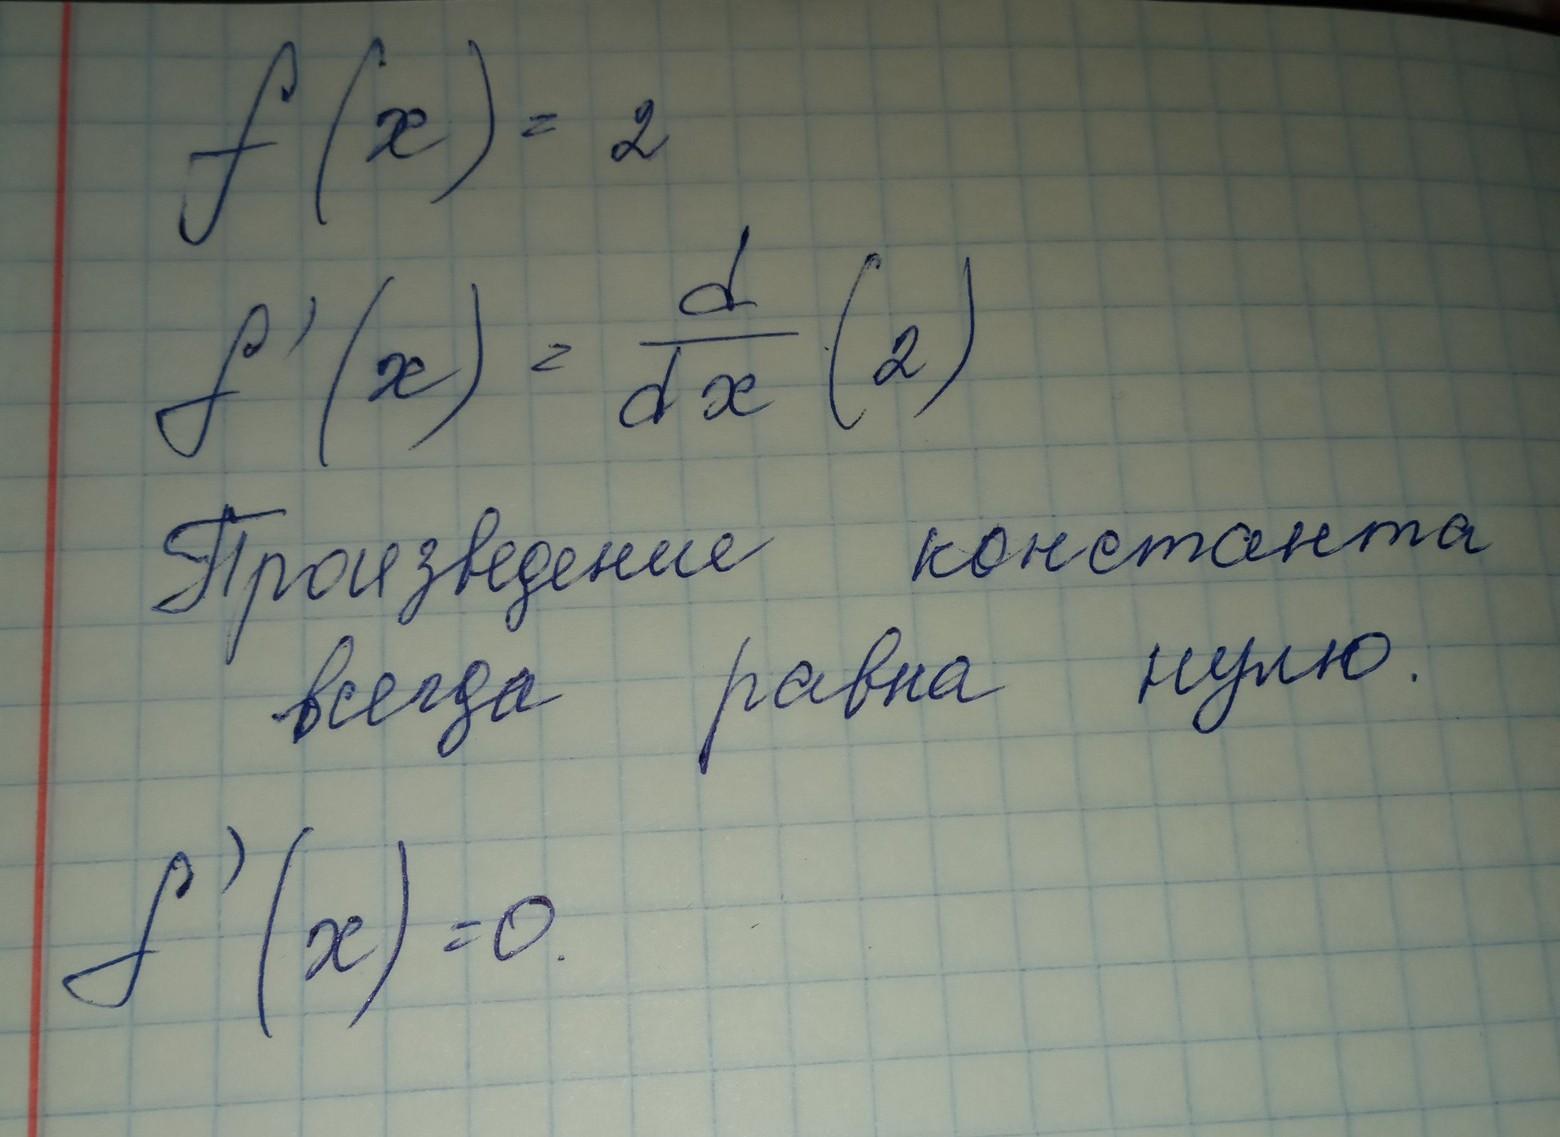 f(x) = 2
f'(x) = d/dx (2)
Произведение константа
всегда равна нулю.
f'(x) = 0.